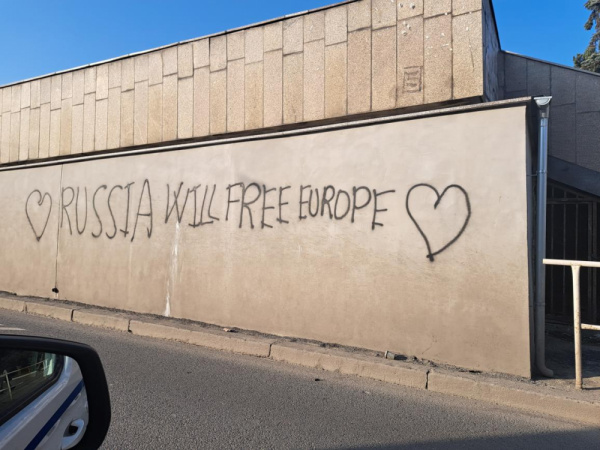 RUSSIA WILL FREE EUROPE